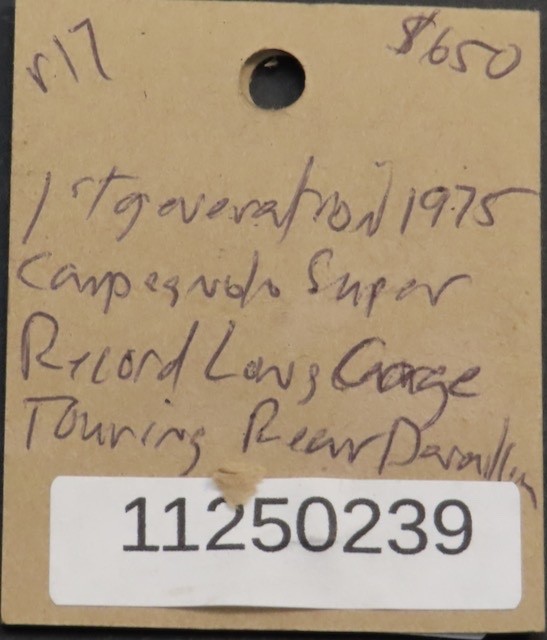 r17 $650
1st generation 1975
Campagnolo Super
Record Long Cage
Touring Rear
11250239